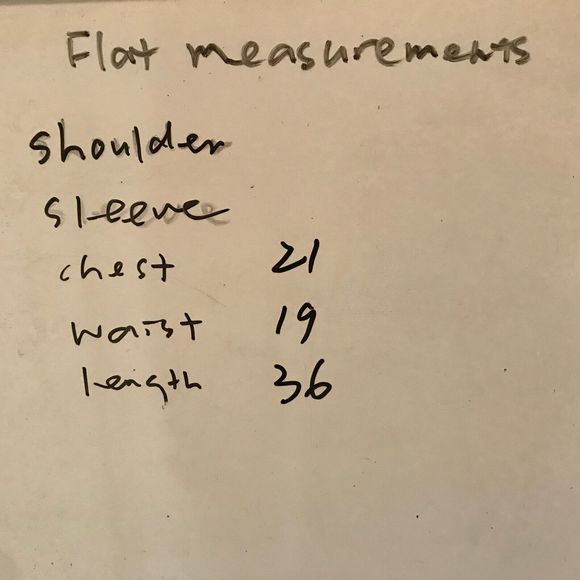 Flat measurements
shoulder
sleeve
chest 21
waist 19
length 36